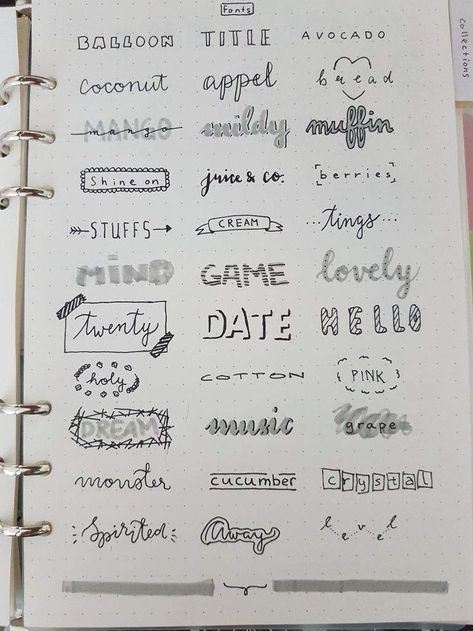 Fonts
collections
BALLOON TITLE AVOCADO
coconut appel bread
MANGO mango mildy muffin
Shine on juice & co. berries
STUFFS CREAM ...tings...
MIND GAME lovely
twenty DATE HELLO
holy COTTON PINK
DREAM music grape
monster cucumber crystal
Spirited Away level